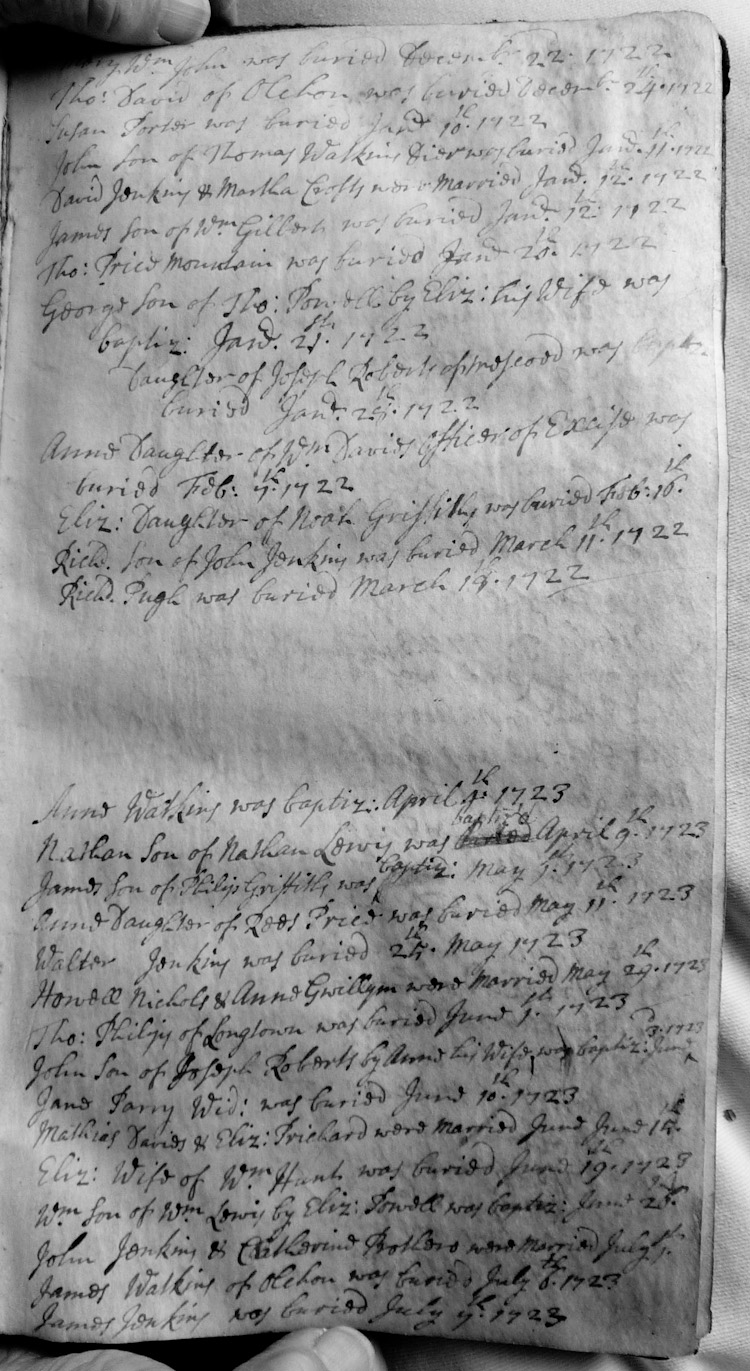 Wm John was buried Decemb: 22. 1722
Tho: David of Olchon was buried Decemb: 24th. 1722
Susan Porter was buried Janr. 10th. 1722
John Son of Thomas Watkins was buried Janr. 11th. 1722
David Jenkins & Martha Crofts were Married Janr. 12th. 1722
James Son of Wm Gilbert was buried Janr. 12th. 1722
Tho: Price Mountain was buried Janr. 1722
George Son of Tho: Powell by Eliz: his Wife was
baptiz: Janr. 21st. 1722
Daughter of Joseph Roberts was
buried Janr. 1722
Anne Daughter of Wm Davies Officer of Excise was
buried Feb: 7th. 1722
Eliz: Daughter of Noah Griffiths was buried Feb: 16th.
Richd. Son of John Jenkins was buried March 11th. 1722
Richd. Pugh was buried March 1722
Anne Watkins was baptiz: April 1723
Nathan Son of Nathan Lewis was baptizd April 9th. 1723
James Son of Philip Griffiths was baptiz: May 1723
Anne Daughter of Rees Price was buried May 11th. 1723
Walter Jenkins was buried 25th. May 1723
Howell Nichols & Anne Gwillym were Married May 29th. 1723
Tho: Philips of Longtown was buried June 1st. 1723
John Son of Joseph Roberts by Anne his Wife was baptiz: June 3d. 1723
Jane Parry Wid: was buried June 10th. 1723
Mathias Davies & Eliz: Prichard were Married June June 15th.
Eliz: Wife of Wm Hunt was buried June 19th. 1723
Wm Son of Wm Lewis by Eliz: Powell was baptiz: June
John Jenkins & Catherine Rothero were Married July 1st.
James Watkins of Olchon was buried July 6th. 1723
James Jenkins was buried July 7th. 1723